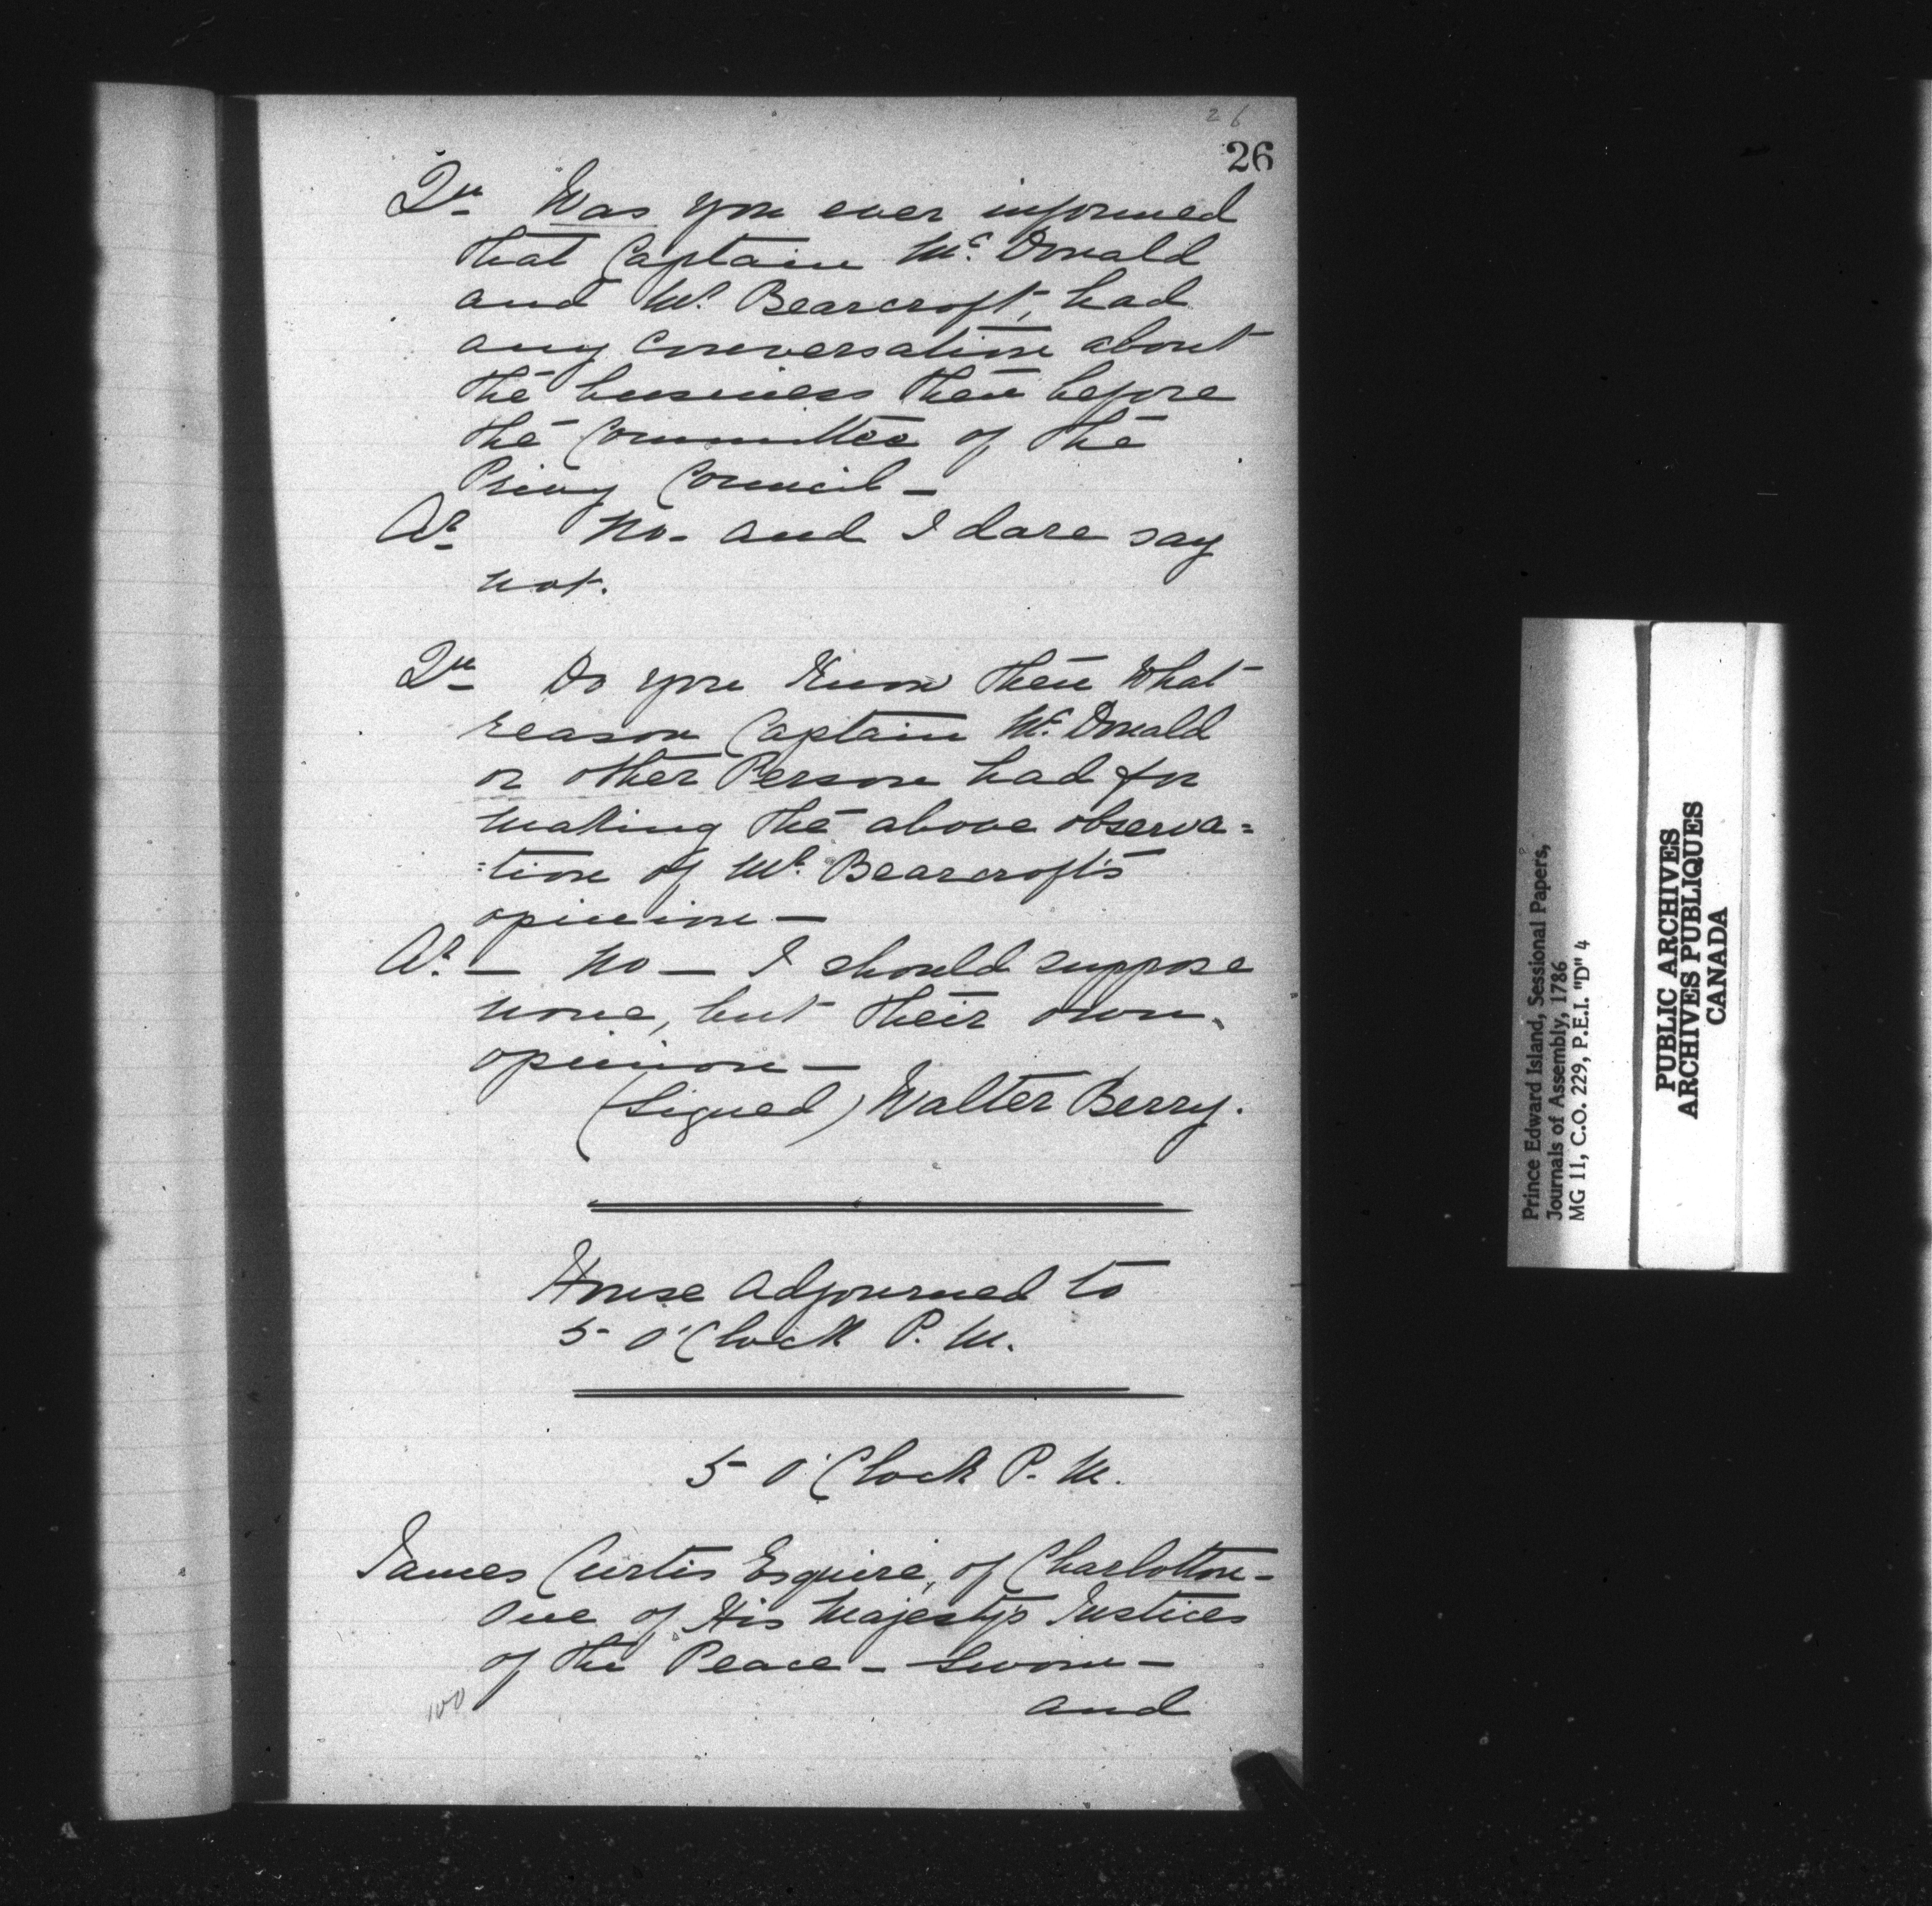 26
26
Qu Was you ever informed
that Captain Mc. Donald
and Mr. Bearcroft, had
any conversation about
the business then before
the Committee of the
Privy Council —
Ar No - and I dare say
not.
Qu Do you Know then What
reason Captain Mc. Donald
or other Person had for
making the above observa=
=tion of Mr. Bearcroft's
opinion —
Ar. — No — I should suppose
none, but their own
opinion —
(Signed) Walter Berry.
House adjourned to
5 O'Clock P. M.
5 O'Clock P. M.
James Curtis Esquire, of Charlotton -
One of His Majesty's Justices
of the Peace - Sworn -
and
100
Prince Edward Island, Sessional Papers,
Journals of Assembly, 1786
MG 11, C.O. 229, P.E.I. "D" 4
PUBLIC ARCHIVES
ARCHIVES PUBLIQUES
CANADA